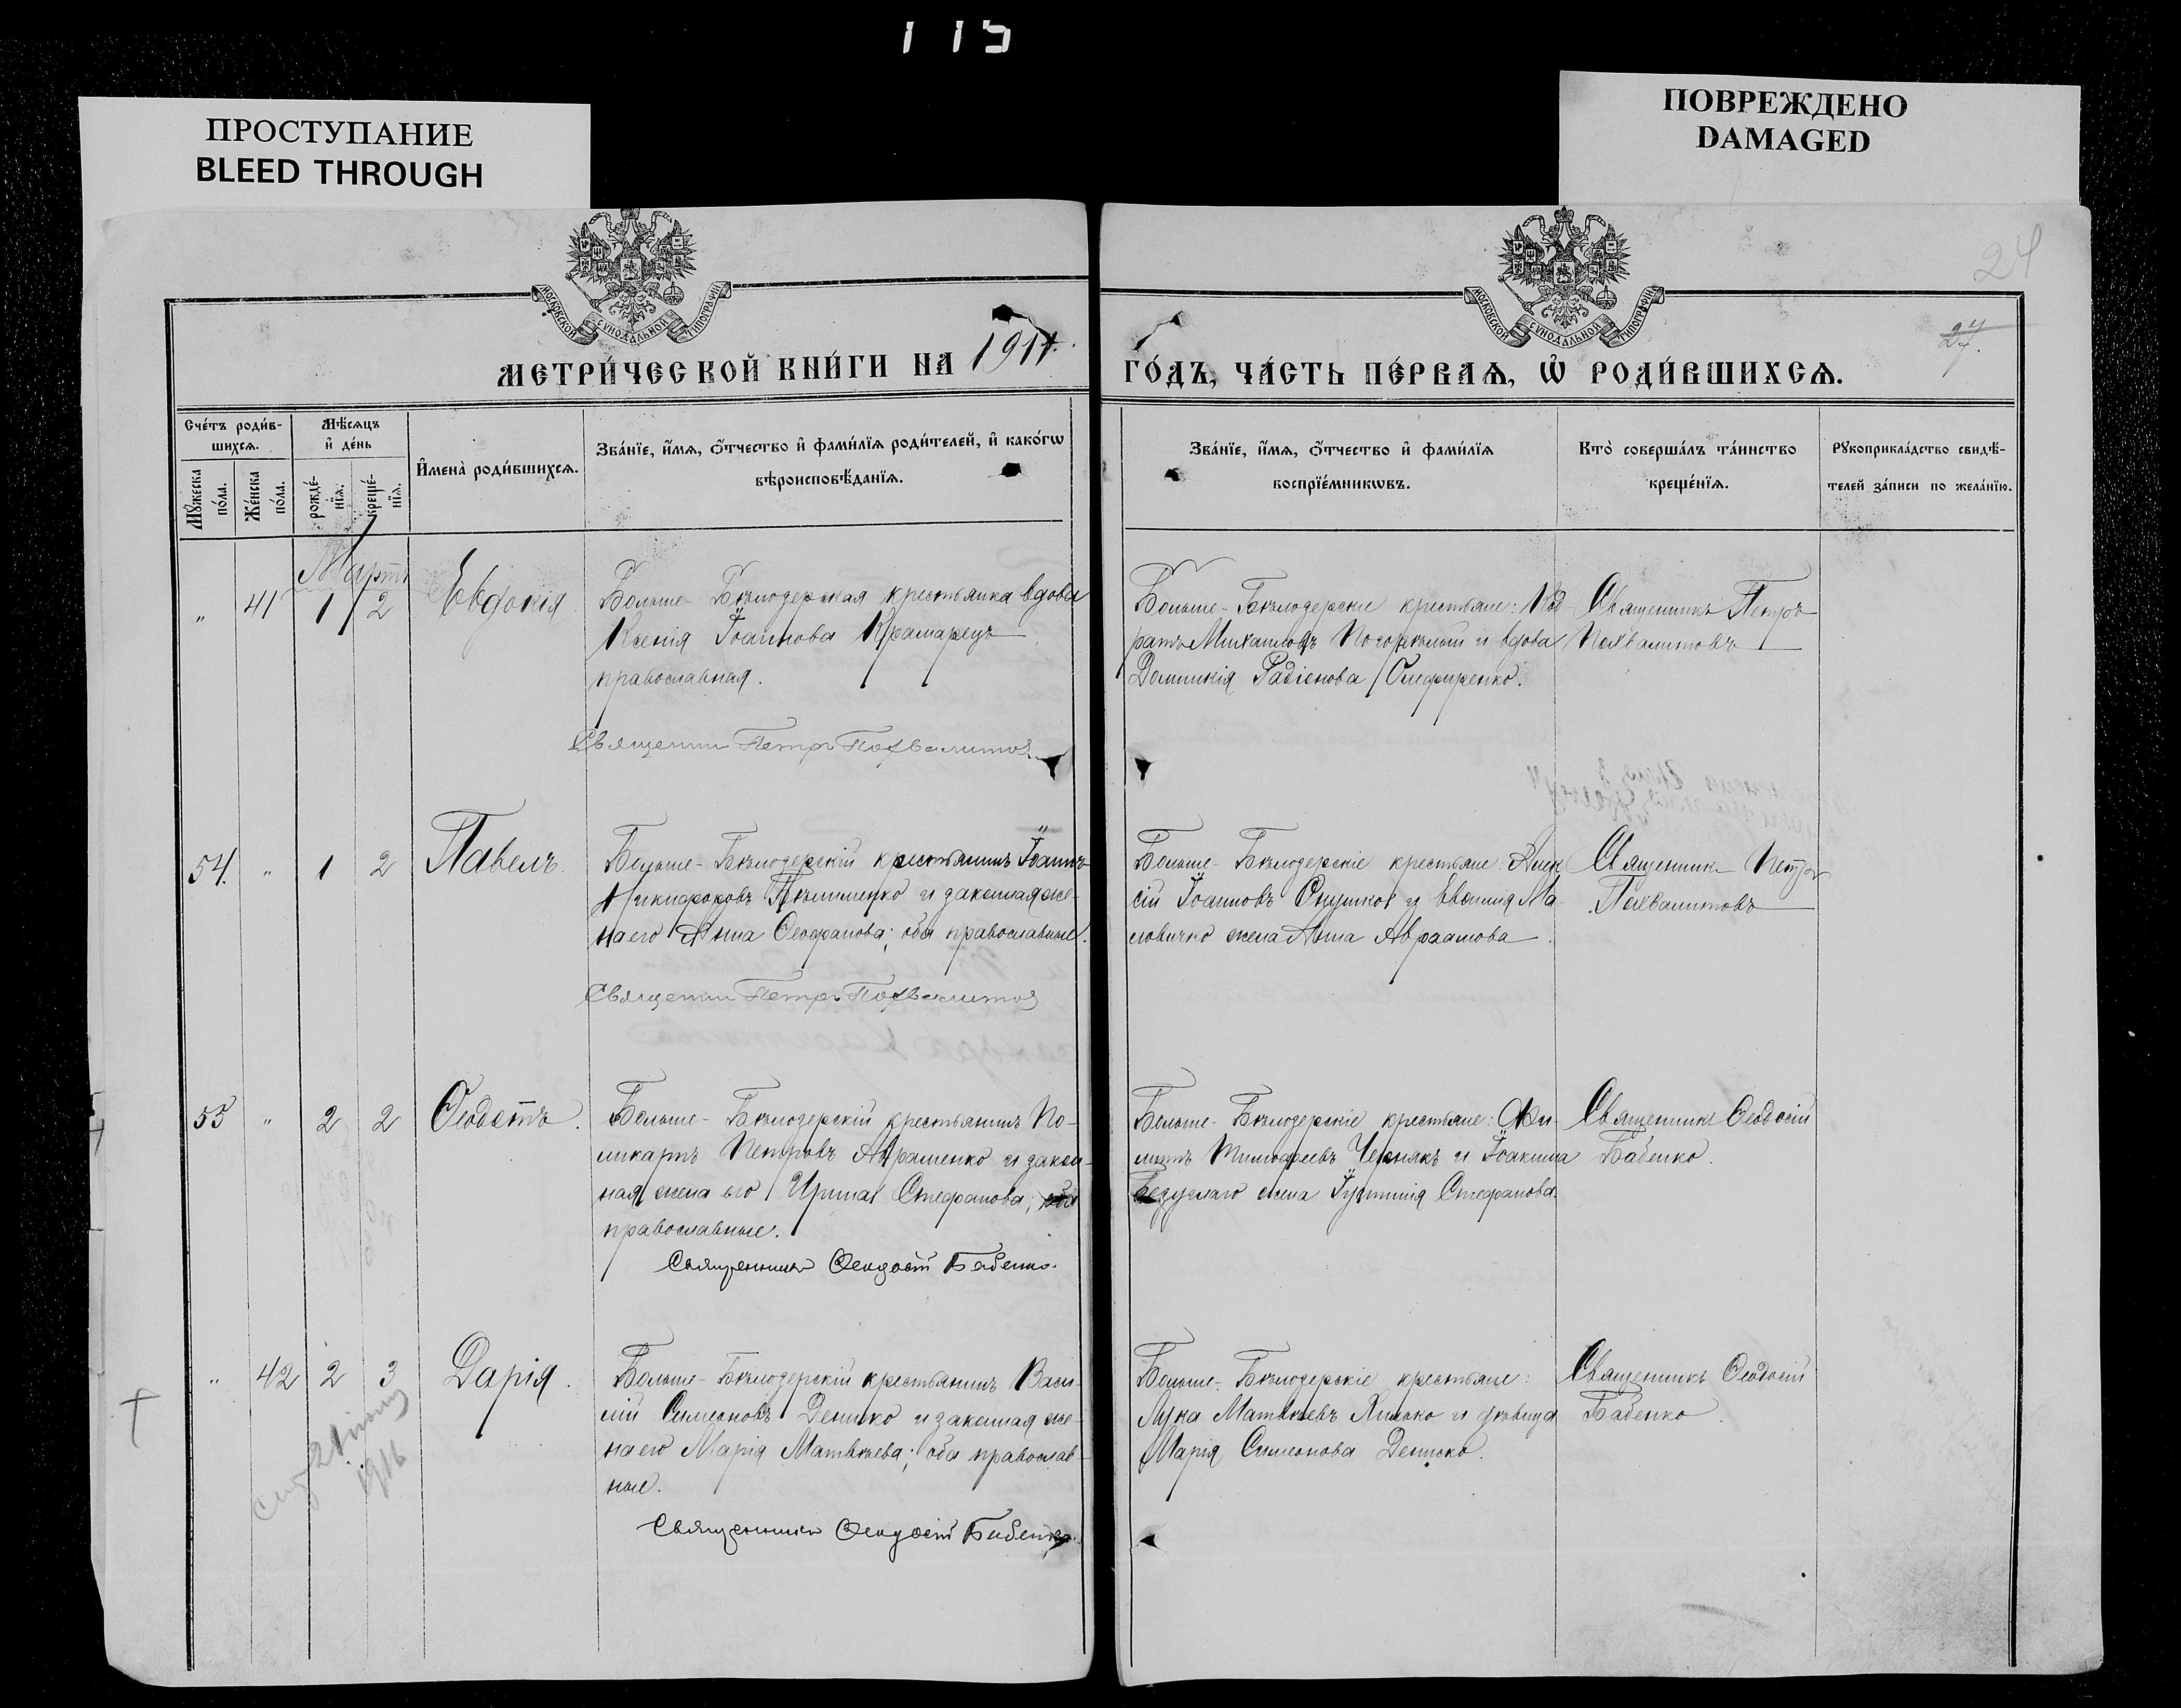 115
ПРОСТУПАНИЕ
BLEED THROUGH
ПОВРЕЖДЕНО
DAMAGED
24
27.
МОСКОВСКОЙ СѴНОДАЛЬНОЙ ТИПОГРАФІИ
МОСКОВСКОЙ СѴНОДАЛЬНОЙ ТИПОГРАФІИ
МЕТРИ́ЧЕСКОЙ КНИ́ГИ НА 1911.
ГО́ДЪ, ЧА́СТЬ ПЕ́РВАѦ, Ѡ҆ РОДИ́ВШИХСѦ.
Сче́тъ роди́в-
шихсѧ.
Мꙋ́жеска по́ла.
Же́нска по́ла.
Мѣ́сѧцъ
и҆ де́нь
рожде́-нїѧ.
креще́-нїѧ.
И҆мена̀ роди́вшихсѧ.
Зва́нїе, и҆́мѧ, ѻ҆́тчество и҆ фами́лїѧ роди́телей, и҆ како́гѡ
вѣроисповѣ́данїѧ.
Зва́нїе, и҆́мѧ, ѻ҆́тчество и҆ фами́лїѧ
воспрїе́мникѡвъ.
Кто̀ соверша́лъ та́инство
креще́нїѧ.
Рꙋкоприкла́дство свидѣ́-
телей за́писи по жела́нїю.
Мартъ
" 41 1 2 Евдокія.
Больше-Бѣлозерская крестьянка вдова
Ксенія Іоаннова Крамарецъ
православная.
Священник Петръ Похвалитов
Больше-Бѣлозерскіе крестьяне: Код-
ратъ Михаиловъ Погорѣлый и вдова
Домникія Радіонова
Священникъ Петръ
Похвалитовъ
54. " 1 2 Павелъ.
Больше-Бѣлозерскій крестьянинъ Іоаннъ
Никифоровъ и законная же-
на его Анна Ѳеофанова; оба православные.
Священник Петръ Похвалитов
Больше-Бѣлозерскіе крестьяне: Алек
сій Іоанновъ и Евѳимія Ма-
ловичко жена Анна Авраамова.
Священникъ Петръ
Похвалитовъ
55 " 2 2 Ѳеодотъ.
Больше-Бѣлозерскій крестьянинъ По-
ликарпъ Петровъ Авраменко и закон-
ная жена его Ирина Стефанова; оба
православные.
Священникъ Ѳеодосій Бабенко.
Больше-Бѣлозерскіе крестьяне: Фи-
липпъ Тимоѳеевъ Чернякъ и Іоакима
Безуглаго жена Іустинія Стефанова.
Священникъ Ѳеодосій
Бабенко.
" 42 2 3 Дарія.
21 іюня
1916
Больше-Бѣлозерскій крестьянинъ Васи-
лій Симеоновъ Дениско и законная же-
на его Марія Матвѣева; оба православ-
ные.
Священникъ Ѳеодосій Бабенко.
Больше-Бѣлозерскіе крестьяне:
Лука Матвѣевъ Хилько и дѣвица
Марія Симеонова Дениско.
Священникъ Ѳеодосій
Бабенко.